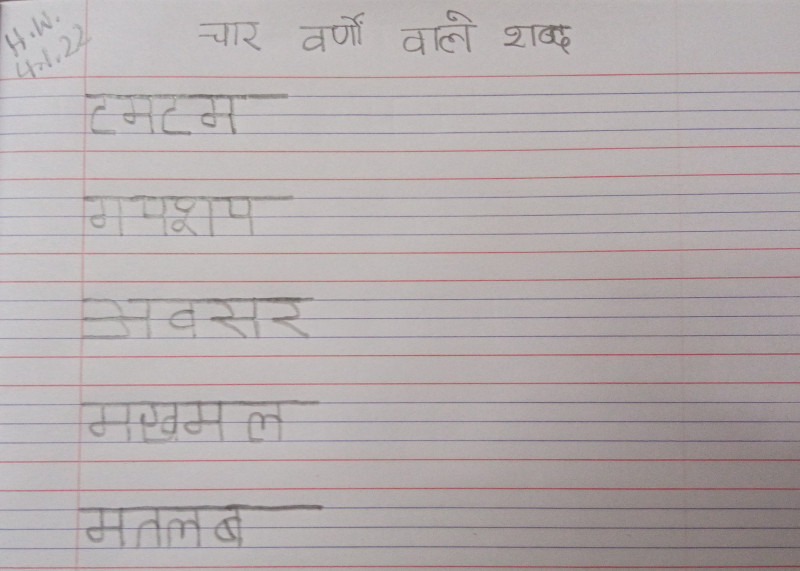 H.W.
4.1.22
चार वर्णों वाले शब्द
टमटम
गपशप
अवसर
मखमल
मतलब